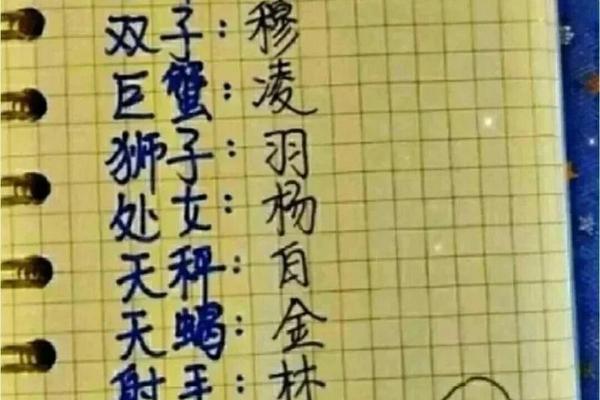 双子：穆
巨蟹：凌
狮子：羽
处女：杨
天秤：白
天蝎：金
射手：林